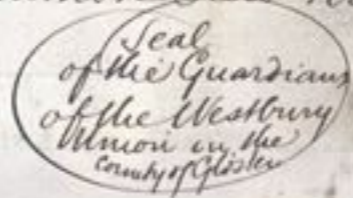 Seal
of the Guardians
of the Westbury
Union in the
County of Gloster